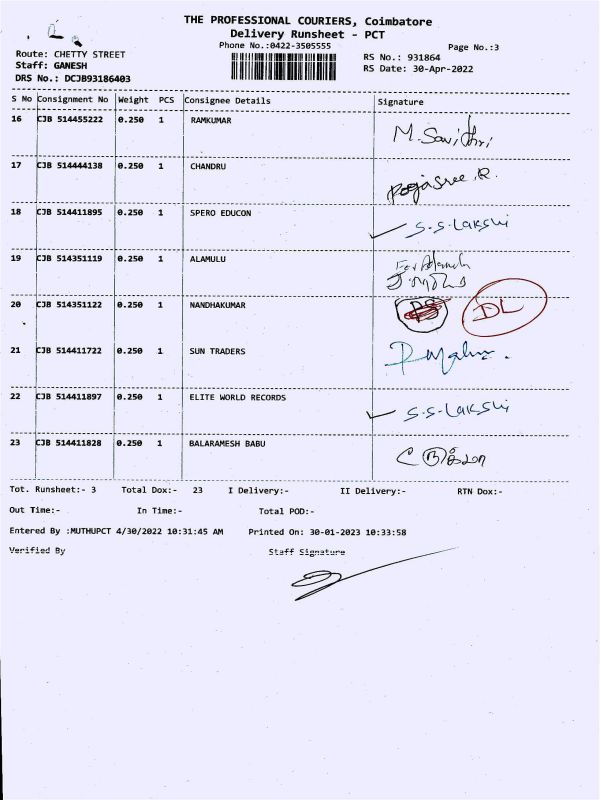 THE PROFESSIONAL COURIERS, Coimbatore
Delivery Runsheet - PCT
Phone No.:0422-3505555
Page No.:3
Route: CHETTY STREET
Staff: GANESH
DRS No.: DCJB93186403
RS No.: 931864
RS Date: 30-Apr-2022
S No Consignment No Weight PCS Consignee Details Signature
16 CJB 514455222 0.250 1 RAMKUMAR M. Savithri
17 CJB 514444138 0.250 1 CHANDRU Pogasree.R.
18 CJB 514411895 0.250 1 SPERO EDUCON S.S.Lakshi
19 CJB 514351119 0.250 1 ALAMULU For
20 CJB 514351122 0.250 1 NANDHAKUMAR DL
21 CJB 514411722 0.250 1 SUN TRADERS
22 CJB 514411897 0.250 1 ELITE WORLD RECORDS S.S.Lakshi
23 CJB 514411828 0.250 1 BALARAMESH BABU
Tot. Runsheet:- 3 Total Dox:- 23 I Delivery:- II Delivery:- RTN Dox:-
Out Time:- In Time:- Total POD:-
Entered By :MUTHUPCT 4/30/2022 10:31:45 AM Printed On: 30-01-2023 10:33:58
Verified By Staff Signature